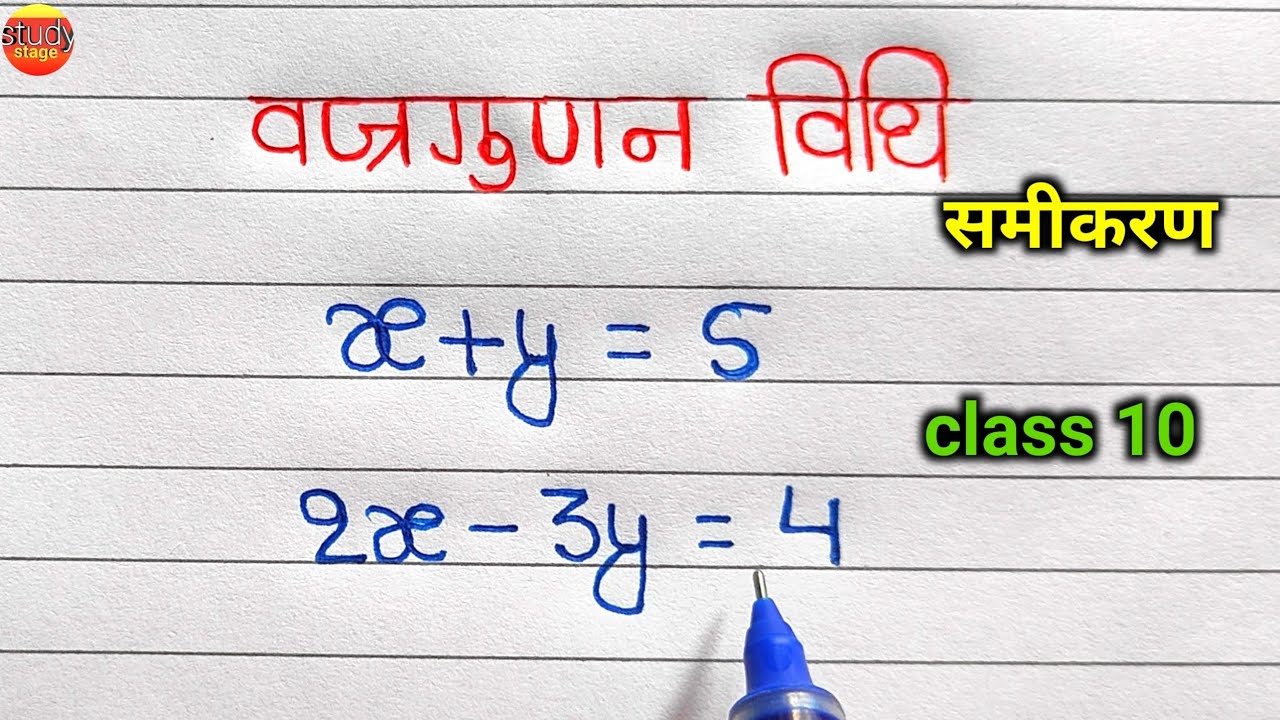 study
stage
वज्रगुणन विधि
समीकरण
x+y = 5
class 10
2x - 3y = 4